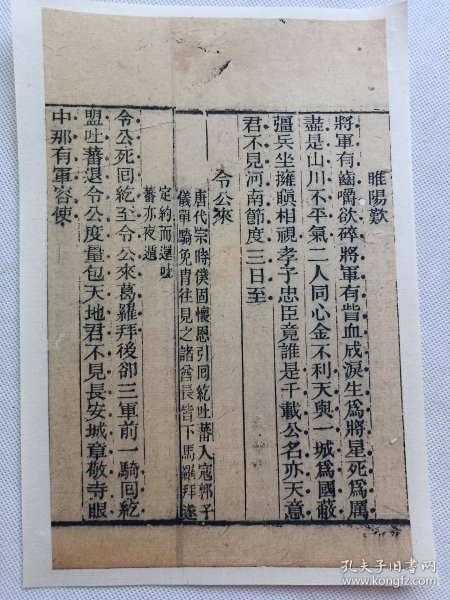 睢陽歎
將軍有齒嚼欲碎將軍有眥血成淚生爲將星死爲厲
盡是山川不平氣二人同心金不利天與一城爲國蔽
彊兵坐擁瞋相視孝子忠臣竟誰是千載公名亦天意
君不見河南節度三日至
令公來
唐代宗時僕固懷恩引回紇吐蕃入寇郭子
儀單騎免冑往見之諸酋長皆下馬羅拜遂
定約而還吐
蕃亦夜遁
令公死回紇至令公來葛羅拜後卻三軍前一騎回紇
盟吐蕃退令公度量包天地君不見長安城章敬寺眼
中那有軍容使
孔夫子旧书网
www.kongfz.com